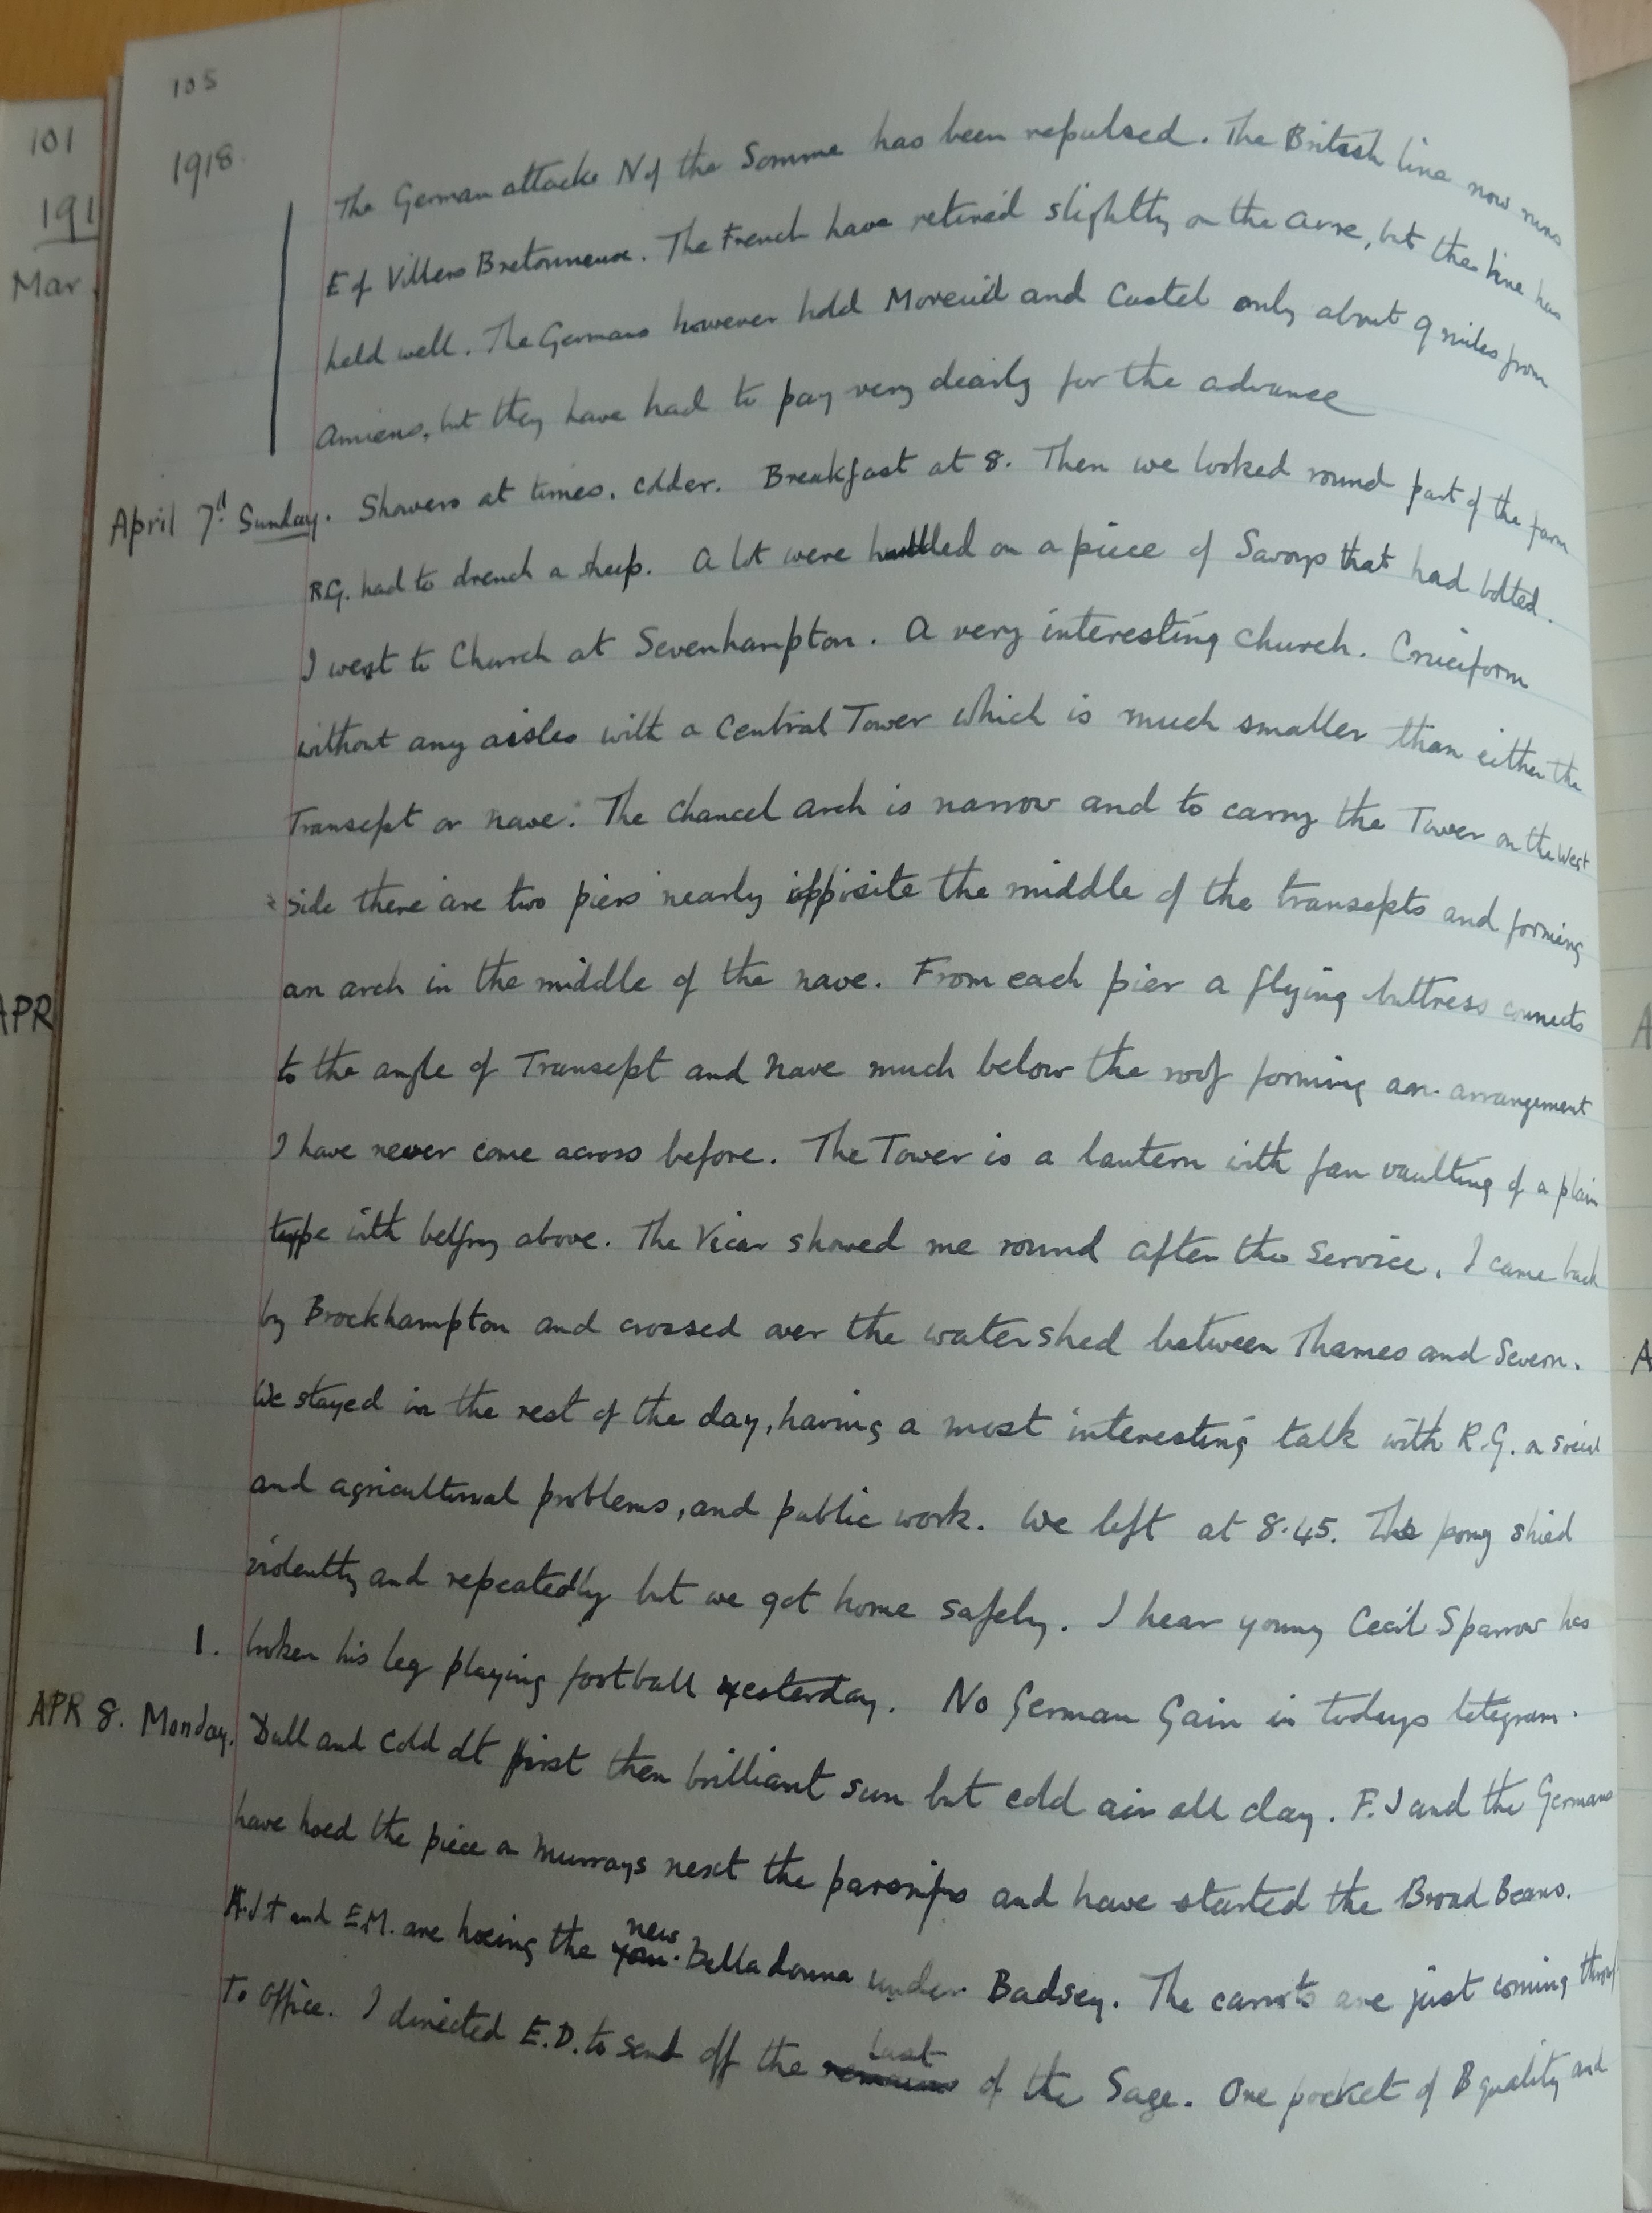 105
101
1918.
191
Mar
The German attacks N of the Somme has been repulsed. The British line now runs
E of Villers Bretonneux. The French have retired slightly on the Avre, but the line has
held well. The Germans however hold Moreuil and Castel only about 9 miles from
Amiens, but they have had to pay very dearly for the advance
April 7th Sunday. Showers at times, colder. Breakfast at 8. Then we looked round part of the farm
R.G. had to drench a sheep. A lot were hurdled on a piece of Savoys that had bolted.
I went to Church at Sevenhampton. A very interesting church. Cruciform
without any aisles with a Central Tower which is much smaller than either the
Transept or nave. The Chancel arch is narrow and to carry the Tower on the West
side there are two piers nearly opposite the middle of the transepts and forming
an arch in the middle of the nave. From each pier a flying buttress connects
to the angle of Transept and Nave much below the roof forming an arrangement
APR
I have never come across before. The Tower is a lantern with fan vaulting of a plain
type with belfry above. The Vicar showed me round after the Service. I came back
by Brockhampton and crossed over the watershed between Thames and Severn.
We stayed in the rest of the day, having a most interesting talk with R.G. on social
and agricultural problems, and public work. We left at 8.45. The pony shied
violently and repeatedly but we got home safely. I hear young Cecil Sparrow has
1. broken his leg playing football yesterday. No German Gain in todays telegram.
APR 8. Monday. Dull and cold at first then brilliant sun but cold air all day. F.J and the Germans
have hoed the piece on Murrays next the parsnips and have started the Broad Beans.
A.J.T and E.M. are hoeing the new Belladonna under Badsey. The carrots are just coming through
To Office. I directed E.D. to send off the remains last of the Sage. One pocket of B quality and